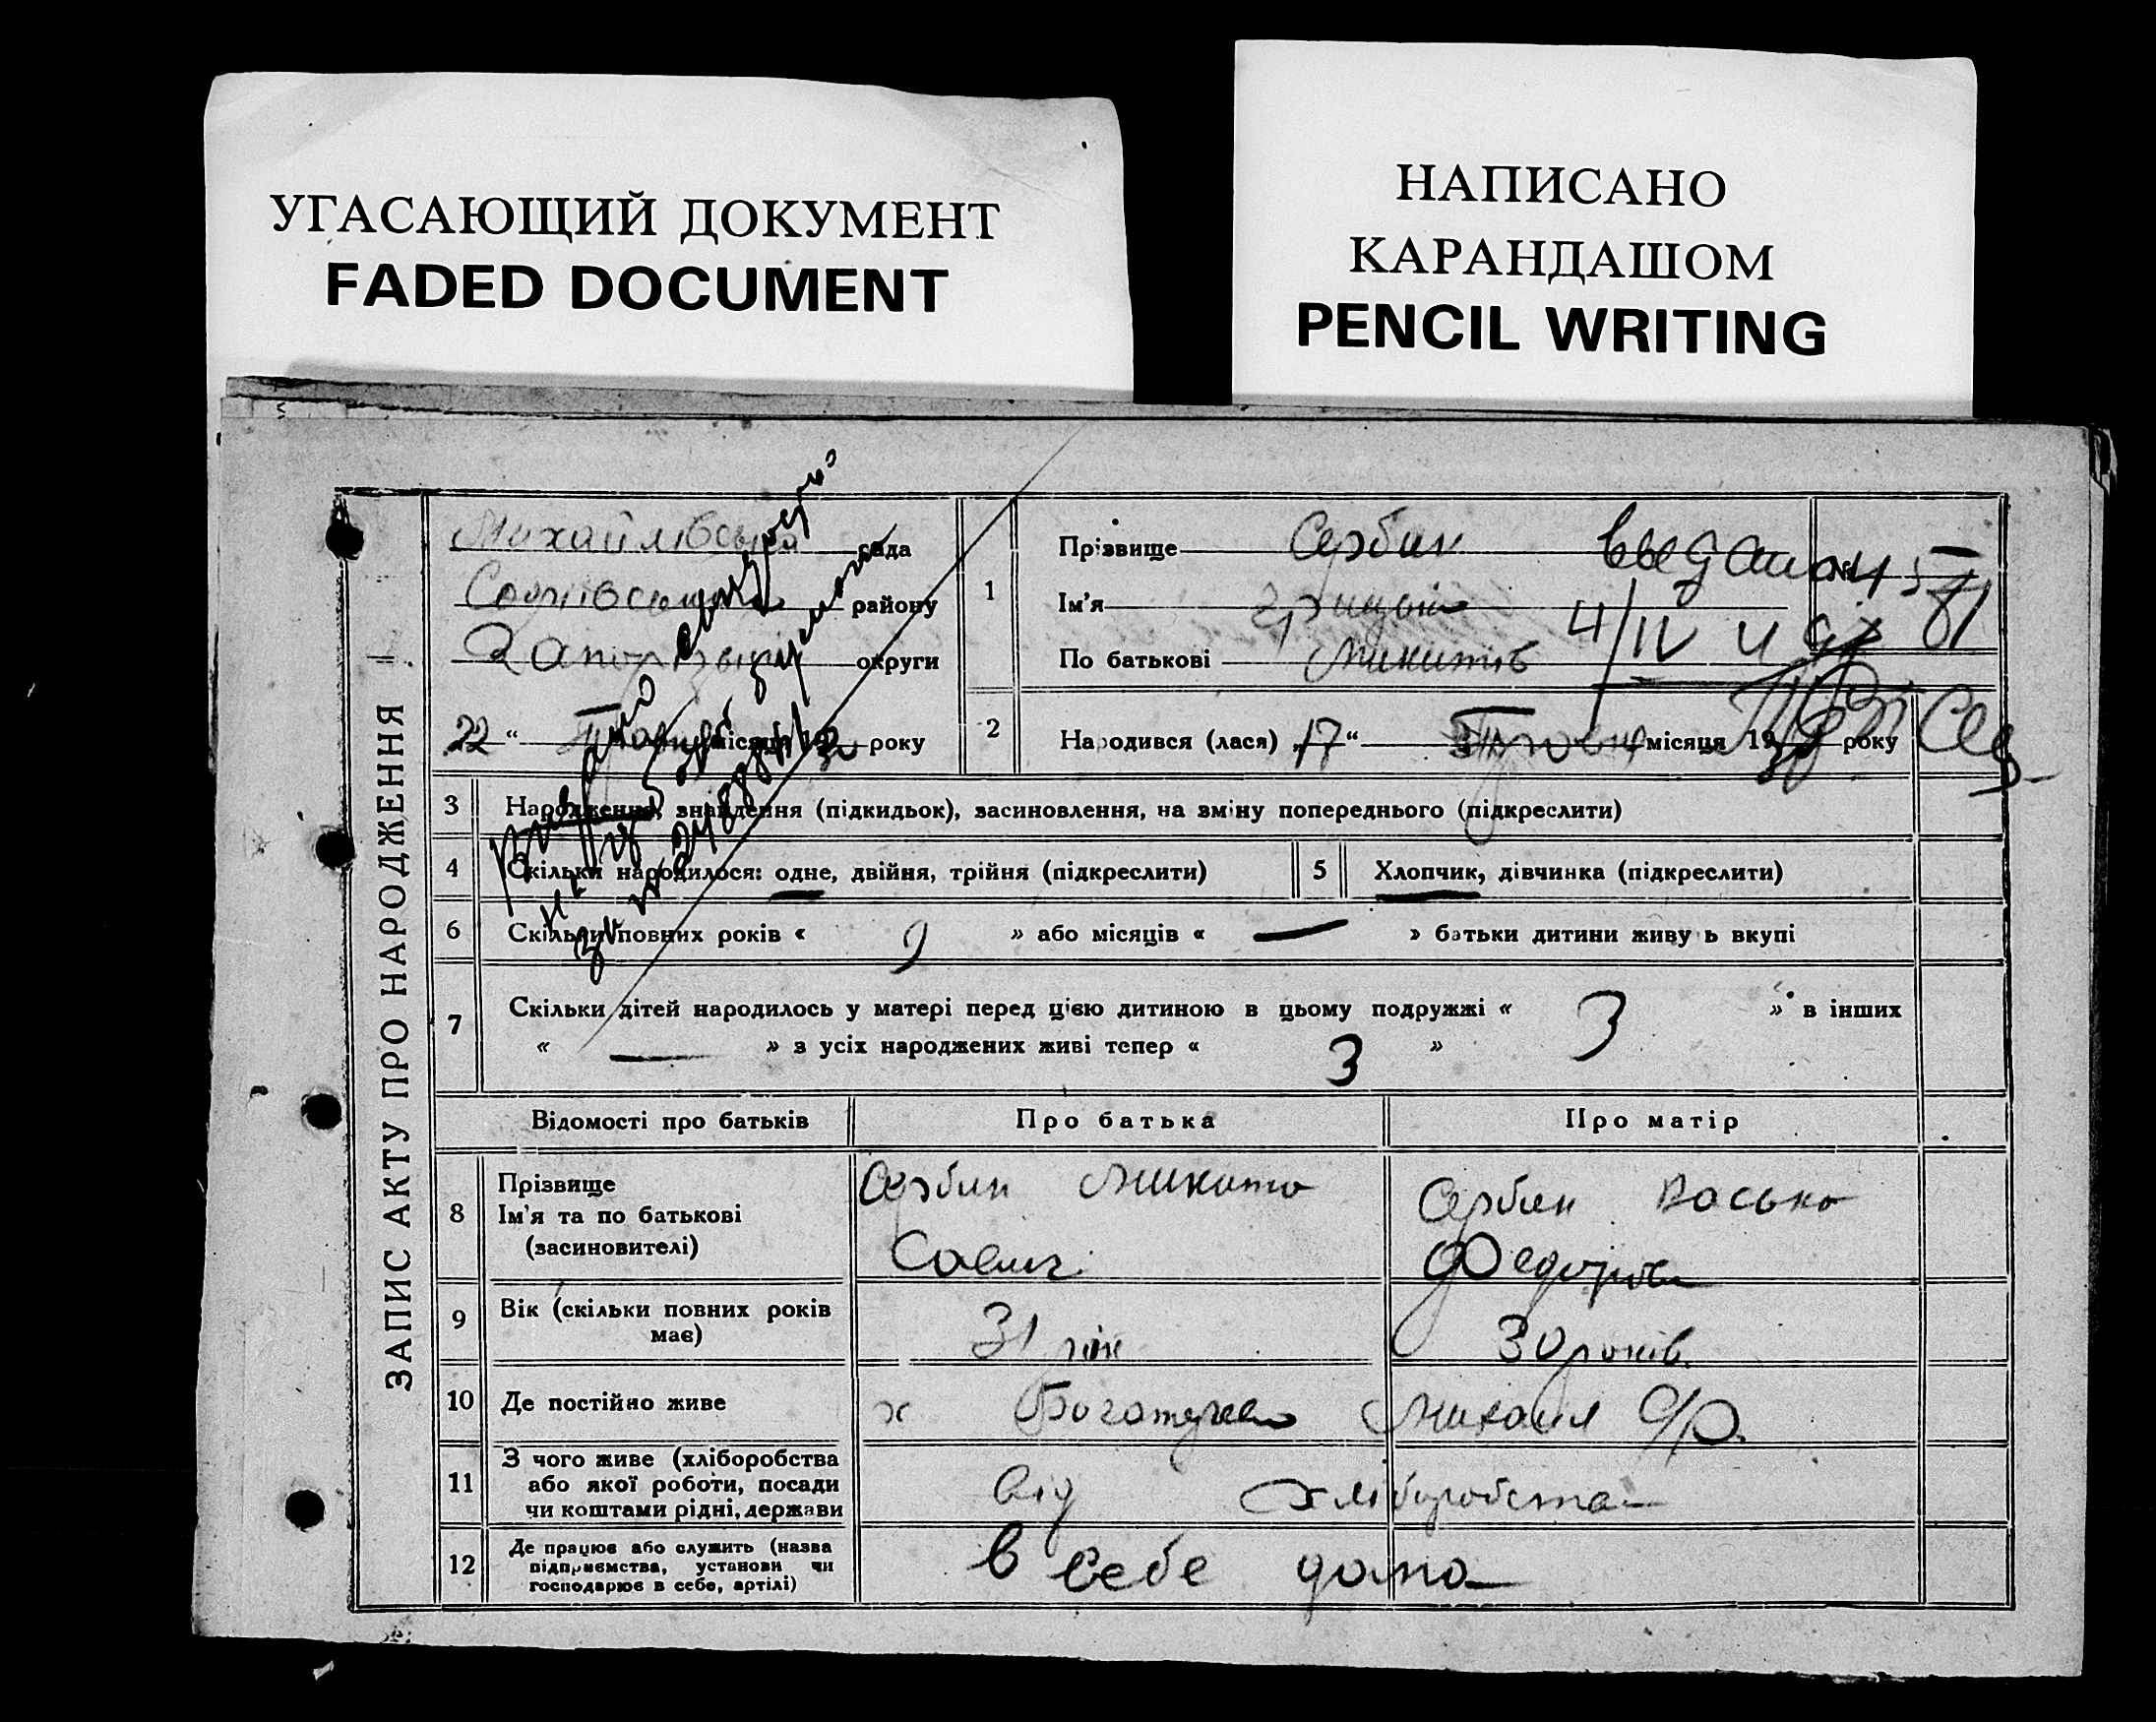 УГАСАЮЩИЙ ДОКУМЕНТ
FADED DOCUMENT
НАПИСАНО
КАРАНДАШОМ
PENCIL WRITING
ЗАПИС АКТУ ПРО НАРОДЖЕННЯ
Михайлівська рада
району
округи
22 “ місяця року
1
Прізвище Сербин
Ім'я Грицько
По батькові Микитів
4/IV
2
Народився (лася) „17“ місяця 19 року
3 Народження, знайдення (підкидьок), засиновлення, на зміну попереднього (підкреслити)
4 Скільки народилося: одне, двійня, трійня (підкреслити)
5 Хлопчик, дівчинка (підкреслити)
6 Скільки повних років « 9 » або місяців « — » батьки дитини живуть вкупі
7 Скільки дітей народилось у матері перед цією дитиною в цьому подружжі « 3 » в інших
« — » з усіх народжених живі тепер « 3 »
Відомості про батьків
Про батька
Про матір
8 Прізвище
Ім'я та по батькові
(засиновителі)
Сербин Микита
Сербин Васька
Федорова
9 Вік (скільки повних років
має)
31 рік
30 років
10 Де постійно живе
х Михайл С/Р.
11 З чого живе (хліборобства
або якої роботи, посади
чи коштами рідні, держави
від хліборобства
12 Де працює або служить (назва
підприємства, установи чи
господарює в себе, артілі)
в себе дома